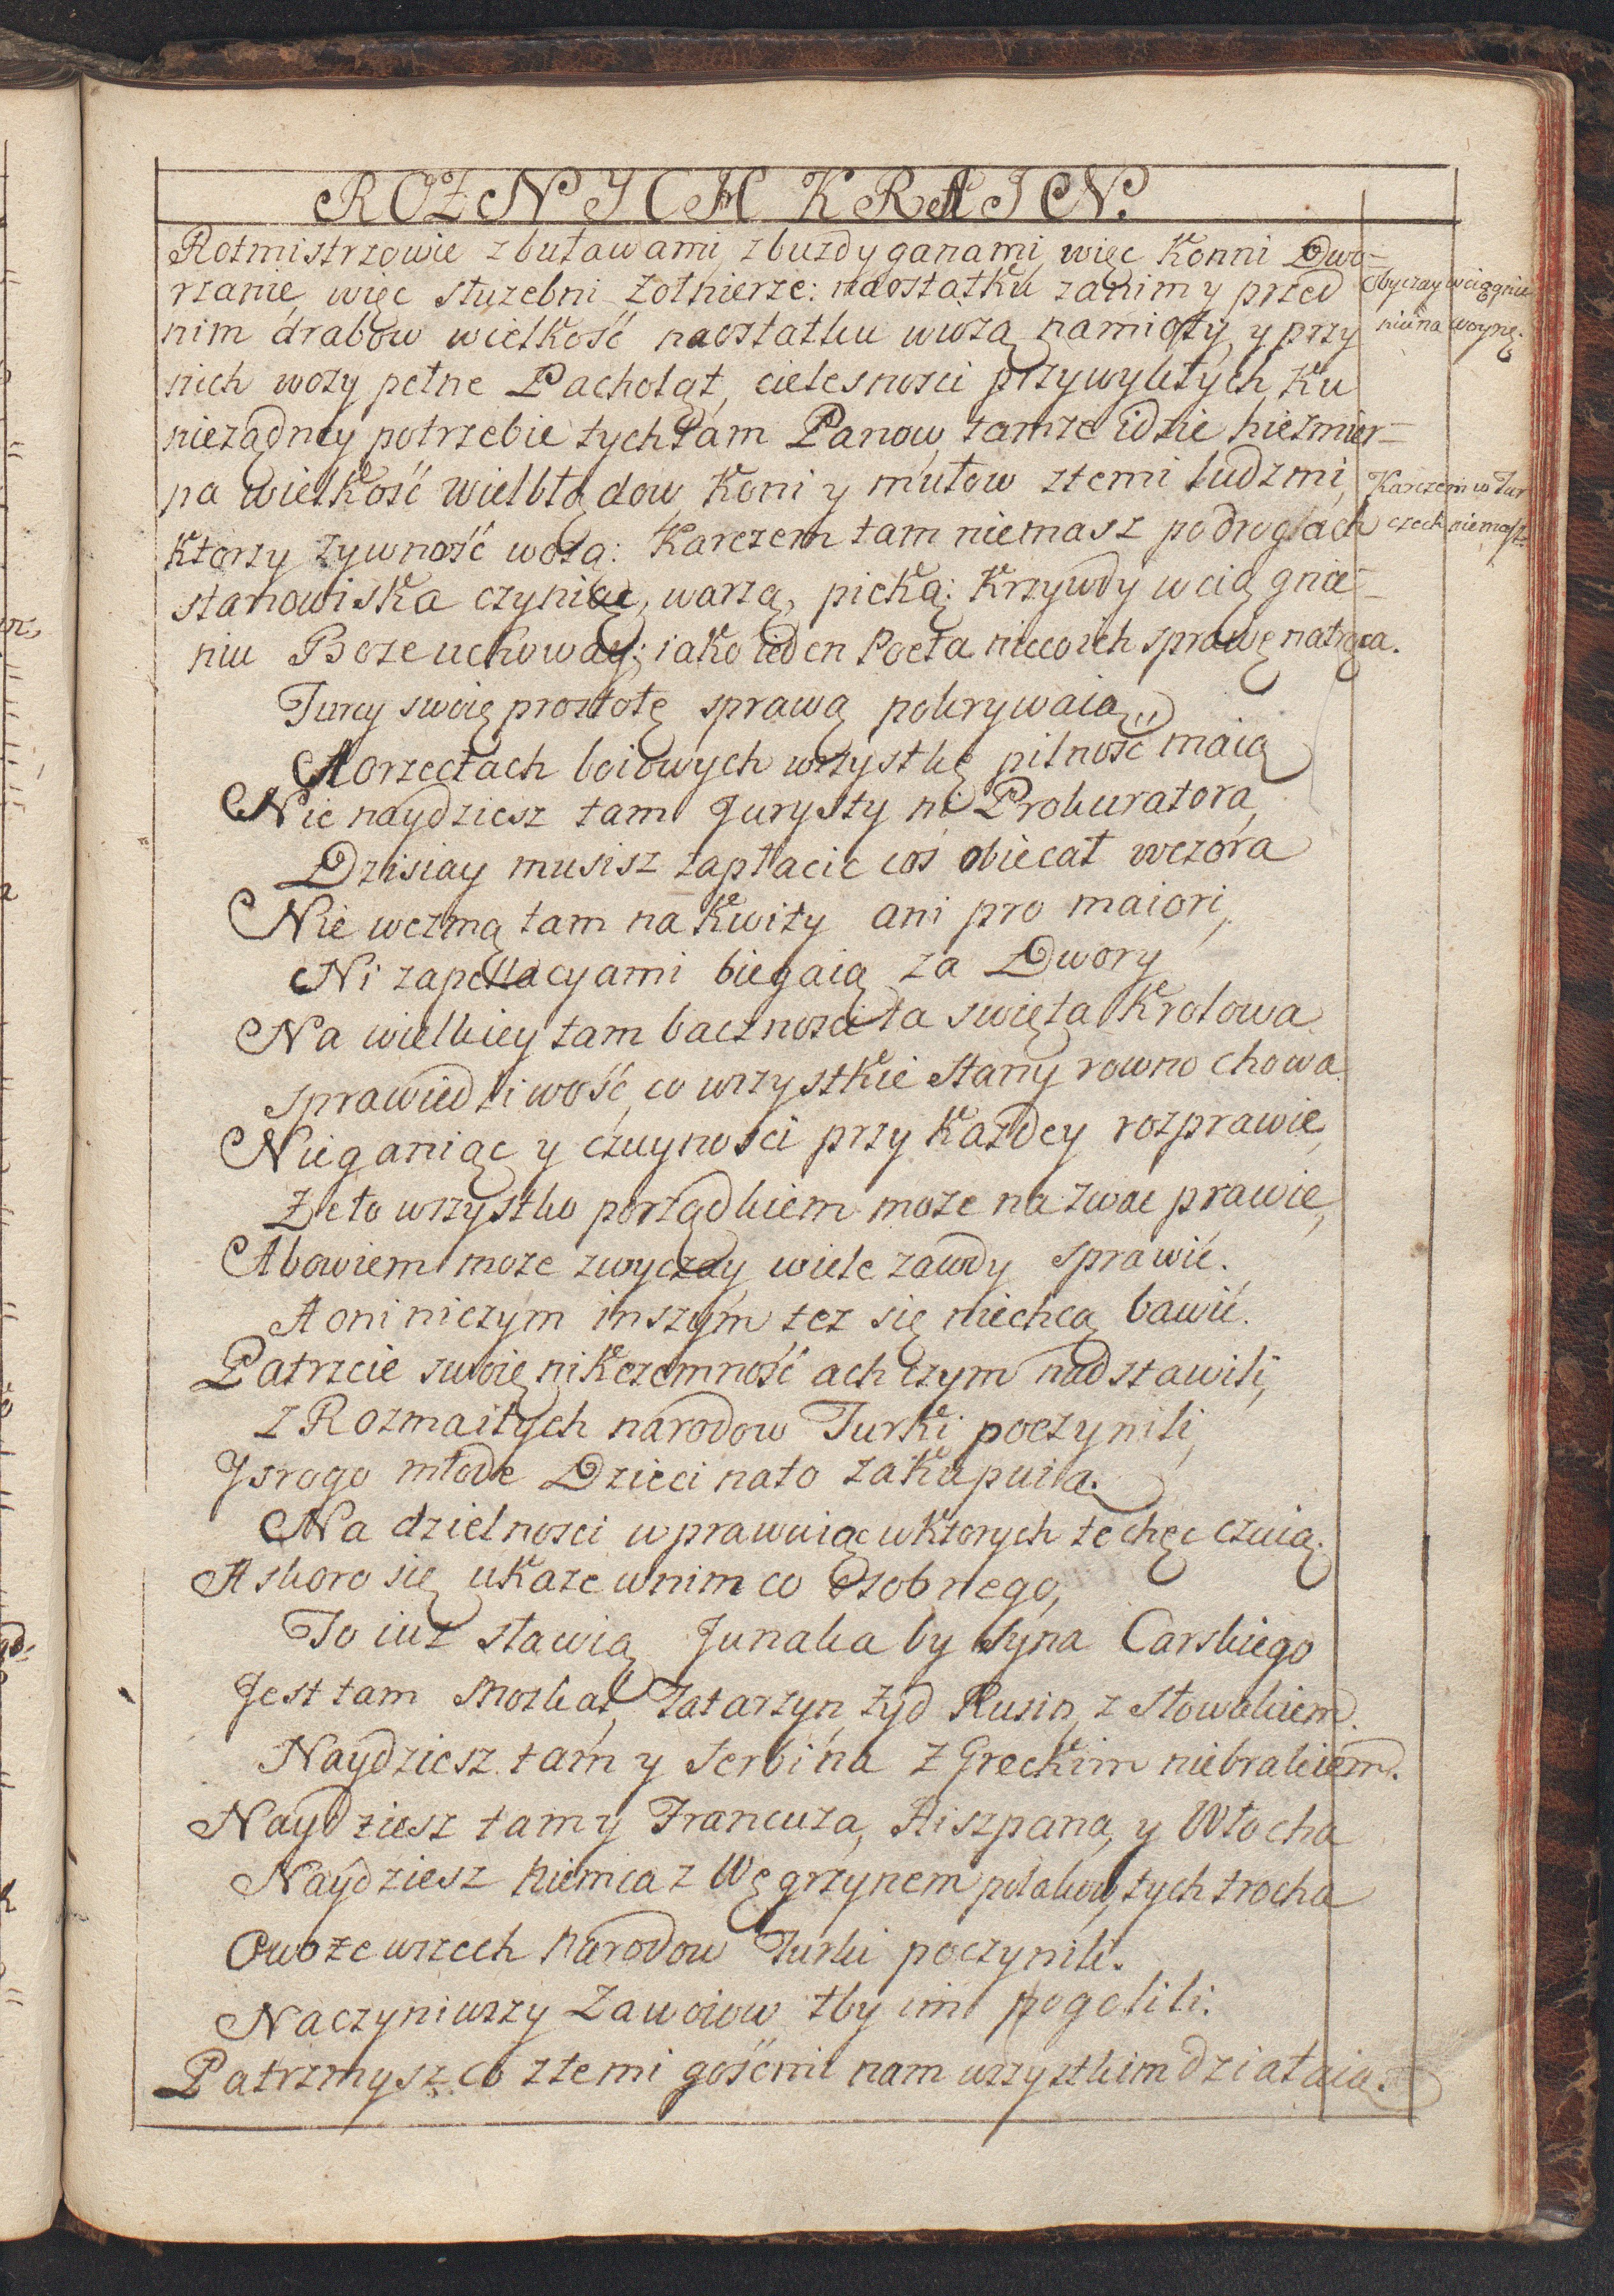 ROZNYCH KRAIN.
Rotmistrzowie z buławami, z buzdyganami, więc Konni Dwo=
rzanie, więc służebni Żołnierze: naostatku zanim y przed
nim drabow wielkość naostatku wiozą namioty, y przy
nich wozy pełne Pacholąt, cielesnosci przywykłych, Ku
nieżądney potrzebie tych tam Panow, tamże idzie niezmier=
na wielkość wielbłądow, Koni y mułow ztemi ludzmi,
Ktorzy zywność wożą: Karczem tam niemasz po drogach
stanowiska czyniąc, warzą, pieką: Krzywdy wciągnie=
niu Boze uchoway: iako ieden Poeta nieco ich sprawę natrąca.
Obyczay wciągnie
niu na woynę.
Karczem w Tur
czech niemasz.
Turcy swoię prostotę sprawą pokrywaią
A orzeczach boiowych wszystkę pilność maią
Nie naydziesz tam Jurysty ni Prokuratora,
Dzisiay musisz zapłacic coś obiecał wczora
Nie wezmą tam na Kwity ani pro maiori,
Ni zapellacyami biegaią za Dwory
Na wielkiey tam bacznosci ta swięta Krolowa
sprawiedliwość, co wszystkie stany rowno chowa
Nieganiąc y czuynosci przy Kazdey rozprawie,
Ze to wszystko porządkiem moze nazwac prawie,
Abowiem moze zwyczay wiele zawdy sprawić.
A oni niczym inszym tez się niechcą bawić.
Patrzcie swoię nikczemność ach czym nadstawili,
Z Rozmaitych narodow Turki poczynili,
Y srogo młode Dzieci nato zakupuią.
Na dzielnosci wprawuiąc w ktorych te chęc czuią.
A skoro się ukaze wnim co osobnego,
To iuz sławią Junaka by Syna Carskiego
Jest tam Moskal, Tatarzyn, Zyd Rusin, z Słowakiem.
Naydziesz tam y Serbina z Greckim niebrakiem.
Naydziesz tam y Francuza, Hiszpana, y Włocha
Naydziesz Niemca z Węgrzynem polakow tych trocha
Owoze wszech Narodow Turki poczynili.
Naczyniwszy Zawoiow łby im pogolili.
Patrzmysz co ztemi gośćmi nam wszystkim działaią.